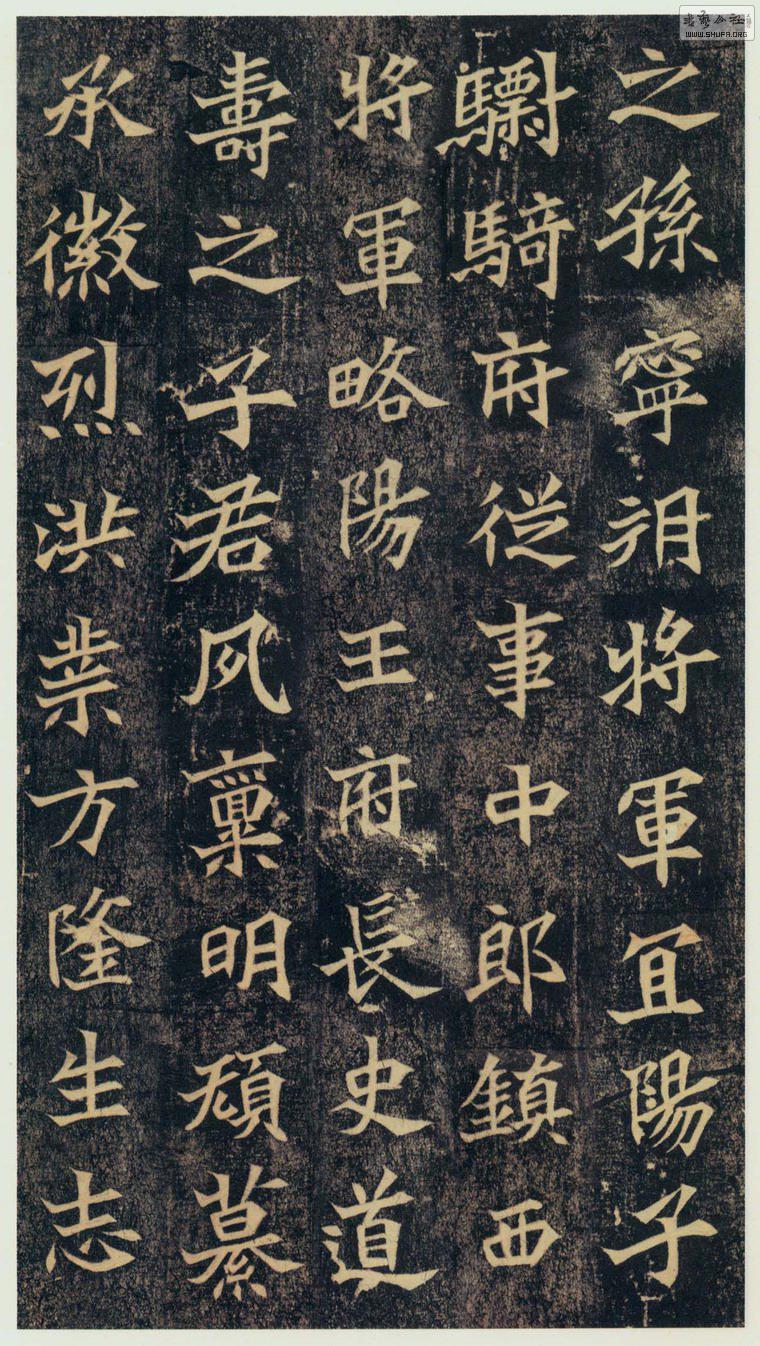 之孫寧朔將軍宜陽子
驃騎府從事中郎鎮西
將軍略陽王府長史道
壽之子君夙稟明纂
承徽烈洪業方隆生志
書藝公社
WWW.SHUFA.ORG